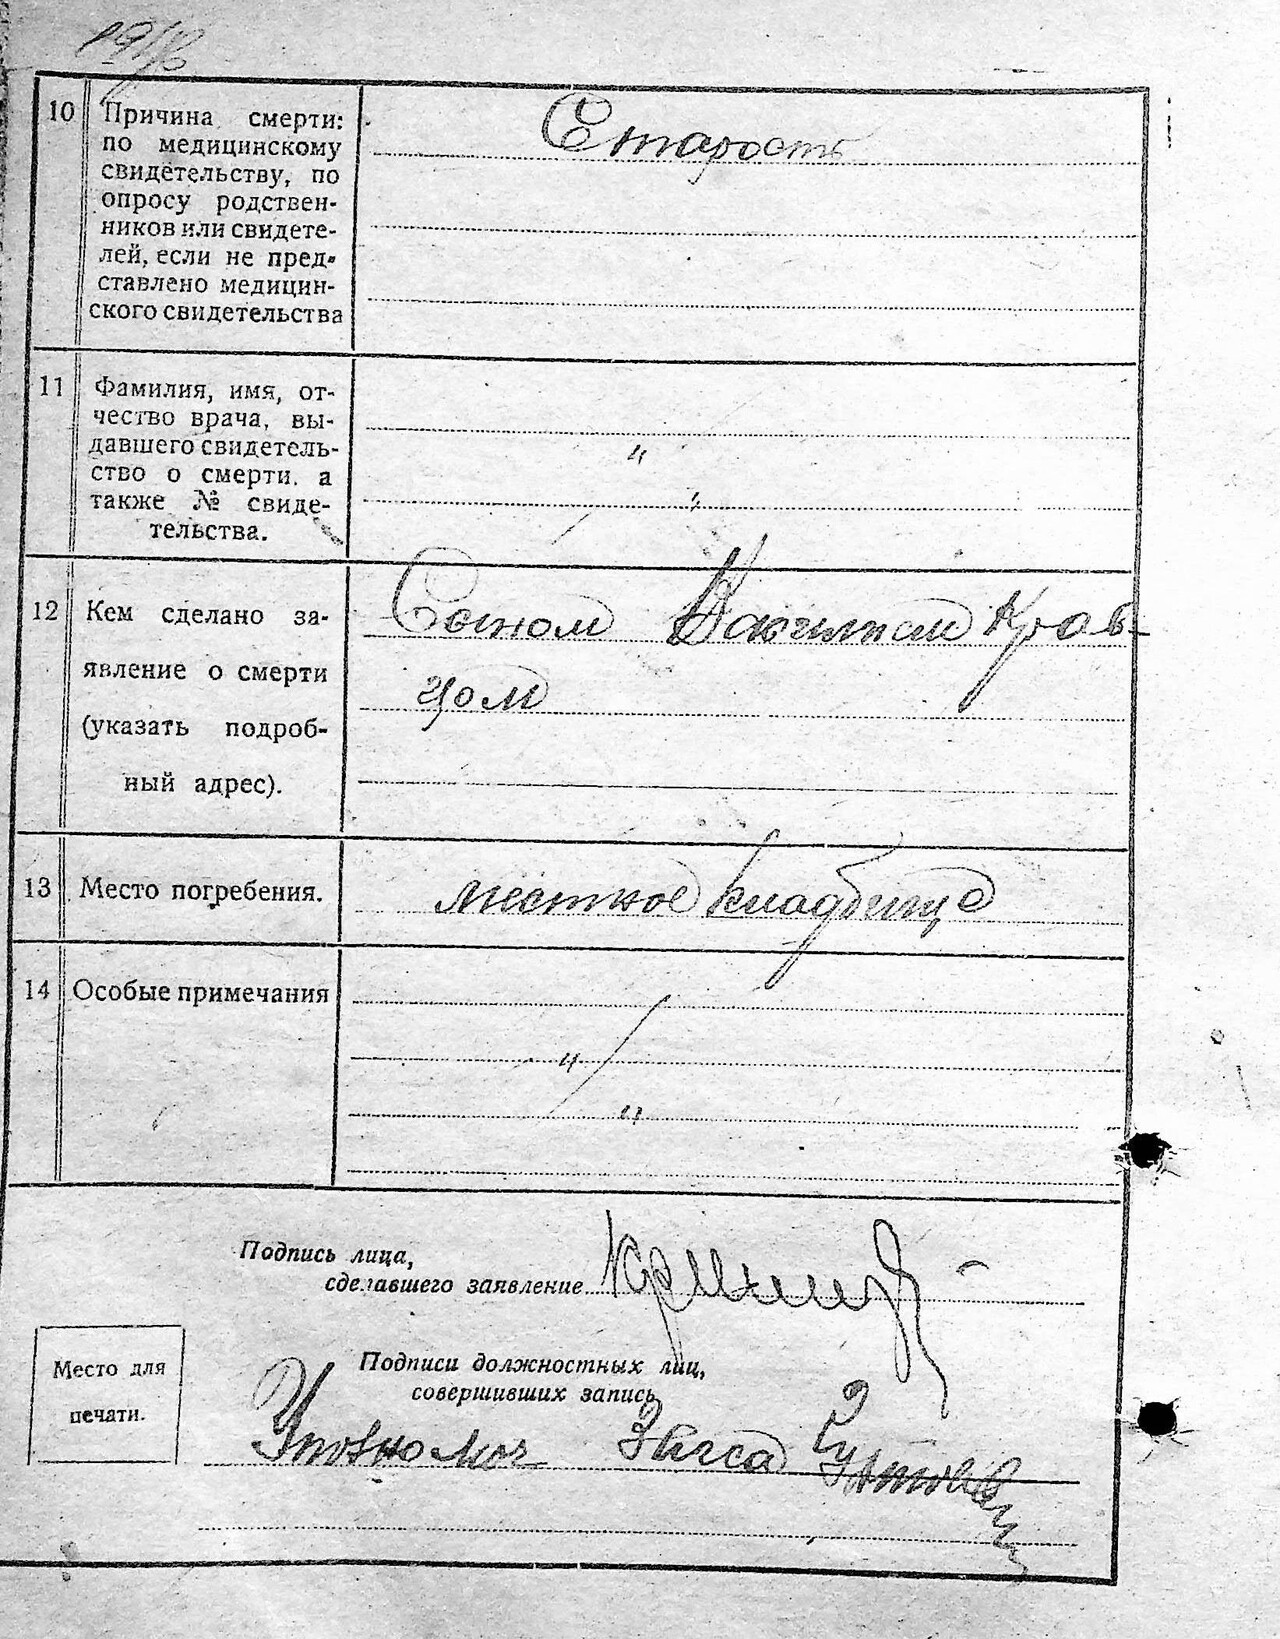 10 Причина смерти:
по медицинскому
свидетельству, по
опросу родствен-
ников или свидете-
лей, если не пред-
ставлено медицин-
ского свидетельства
Старость
11 Фамилия, имя, от-
чество врача, вы-
давшего свидетель-
ство о смерти, а
также № свиде-
тельства.
"
"
12 Кем сделано за-
явление о смерти
(указать подроб-
ный адрес).
Сыном Василием Крав-
цом
13 Место погребения.
местное кладбище
14 Особые примечания
"
"
Подпись лица,
сделавшего заявление
Место для
печати.
Подписи должностных лиц,
совершивших запись
Уповномоч Загса